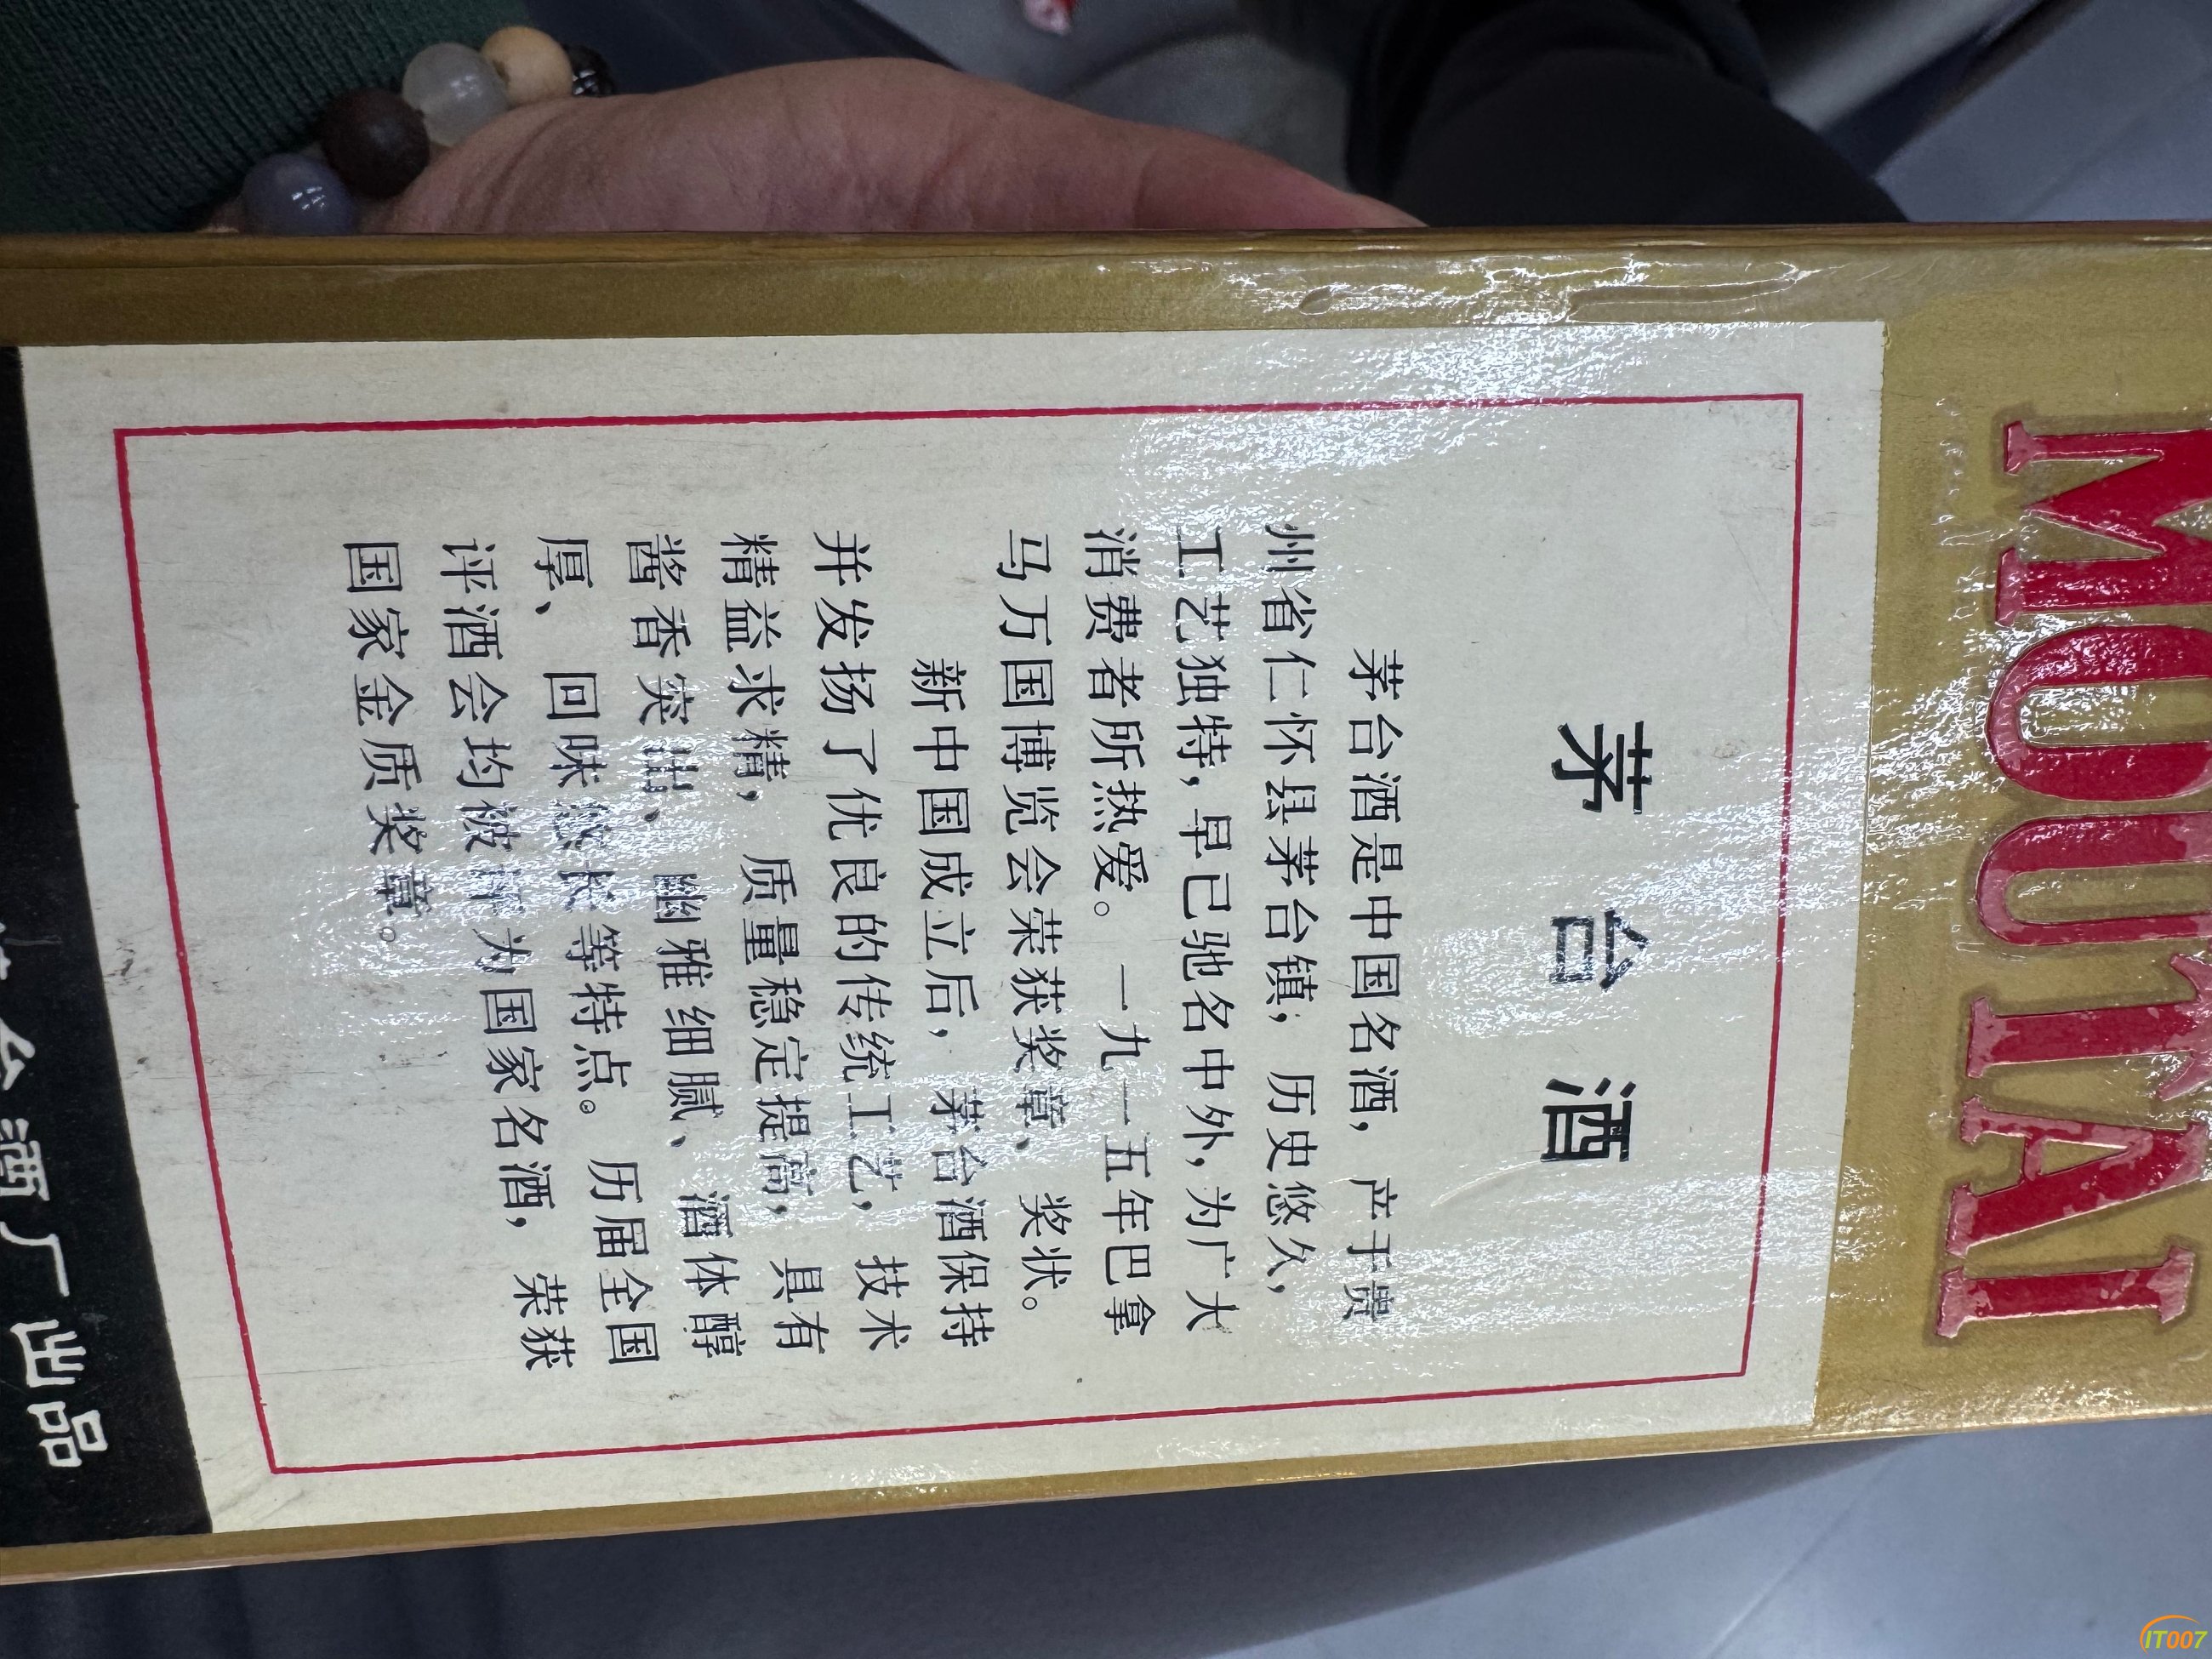 MOUTAI
茅台酒
茅台酒是中国名酒，产于贵
州省仁怀县茅台镇，历史悠久，
工艺独特，早已驰名中外，为广大
消费者所热爱。一九一五年巴拿
马万国博览会荣获奖章、奖状。
新中国成立后，茅台酒保持
并发扬了优良的传统工艺，技术
精益求精，质量稳定提高，具有
酱香突出、幽雅细腻、酒体醇
厚、回味悠长等特点。历届全国
评酒会均被评为国家名酒，荣获
国家金质奖章。
台酒厂出品
IT007